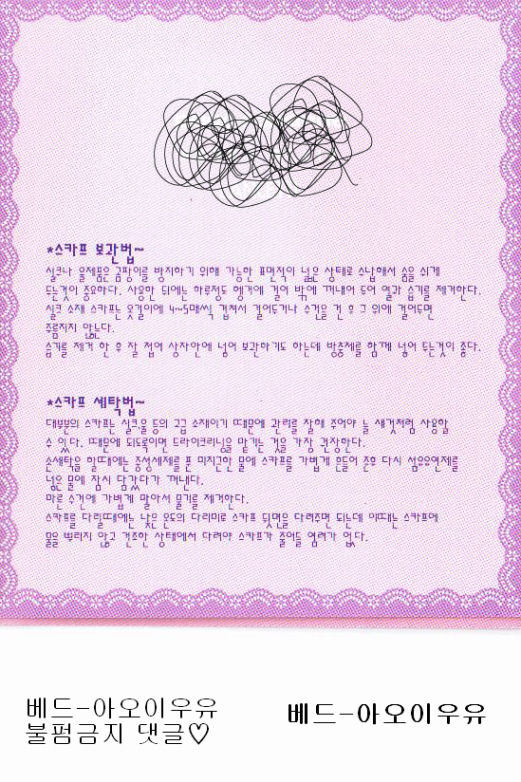 *스카프 보관법~
실크나 울제품은 곰팡이를 방지하기 위해 가능한 표면적이 넓은 상태로 수납해서 숨을 쉬게
두는것이 중요하다. 사용한 뒤에는 하루정도 행거에 걸어 밖에 꺼내어 두어 열과 습기를 제거한다.
실크 소재 스카프는 옷걸이에 4~5매씩 겹쳐서 걸어두거나 수건을 건 후 그 위에 걸어두면
주름지지 않는다.
습기를 제거 한 후 잘 접어 상자안에 넣어 보관하기도 하는데 방충제를 함께 넣어 두는것이 좋다.
*스카프 세탁법~
대부분의 스카프는 실크,울 등의 고급 소재이기 때문에 관리를 잘해 주어야 늘 새것처럼 사용할
수 있다. 때문에 되도록이면 드라이크리닝을 맡기는 것을 가장 권장한다.
손세탁을 할때에는 중성세제를 푼 미지근한 물에 스카프를 가볍게 흔들어 준후 다시 섬유유연제를
넣은 물에 잠시 담갔다가 꺼낸다.
마른 수건에 가볍게 말아서 물기를 제거한다.
스카프를 다릴때에는 낮은 온도의 다리미로 스카프 뒷면을 다려주면 되는데 이때는 스카프에
물을 뿌리지 않고 건조한 상태에서 다려야 스카프가 줄어들 염려가 없다.
베드-아오이우유
불펌금지 댓글♡
베드-아오이우유